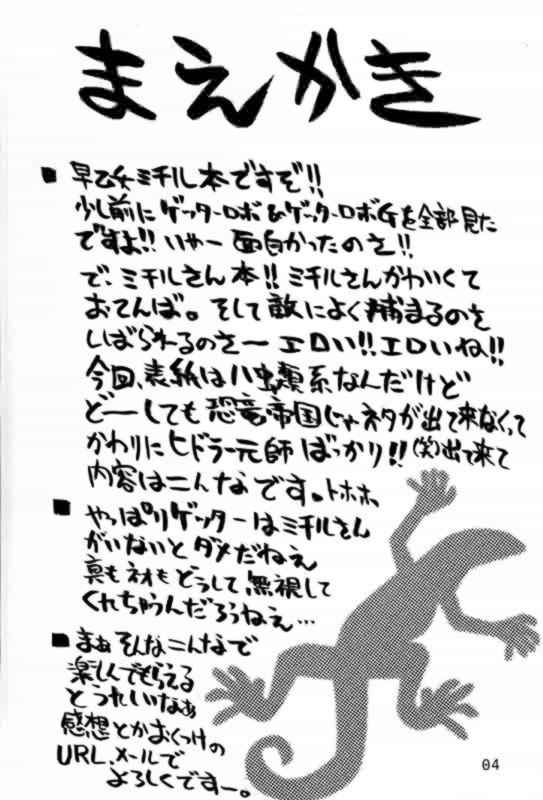 まえがき
■ 早乙女ミチル本ですぞ!!
少し前にゲッターロボ&ゲッターロボGを全部見た
ですよ!! いやー 面白かったのさ!!
で、ミチルさん本!! ミチルさんかわいくて
おてんば。そして敵によく捕まるのさ
しばられるのさー エロい!! エロいね!!
今回、表紙はハ虫類系なんだけど
どーしても恐竜帝国じゃネタが出て来なくって
かわりにヒドラー元師ばっかり!! (笑)出て来て
内容はこんなです。トホホ
■ やっぱりゲッターはミチルさん
がいないとダメだねえ
真もネオもどうして無視して
くれちゃうんだろうねえ…
■ まぁそんなこんなで
楽しんでもらえる
とうれしいなぁ
感想とかおくつけの
URL、メールで
よろしくですー。
04